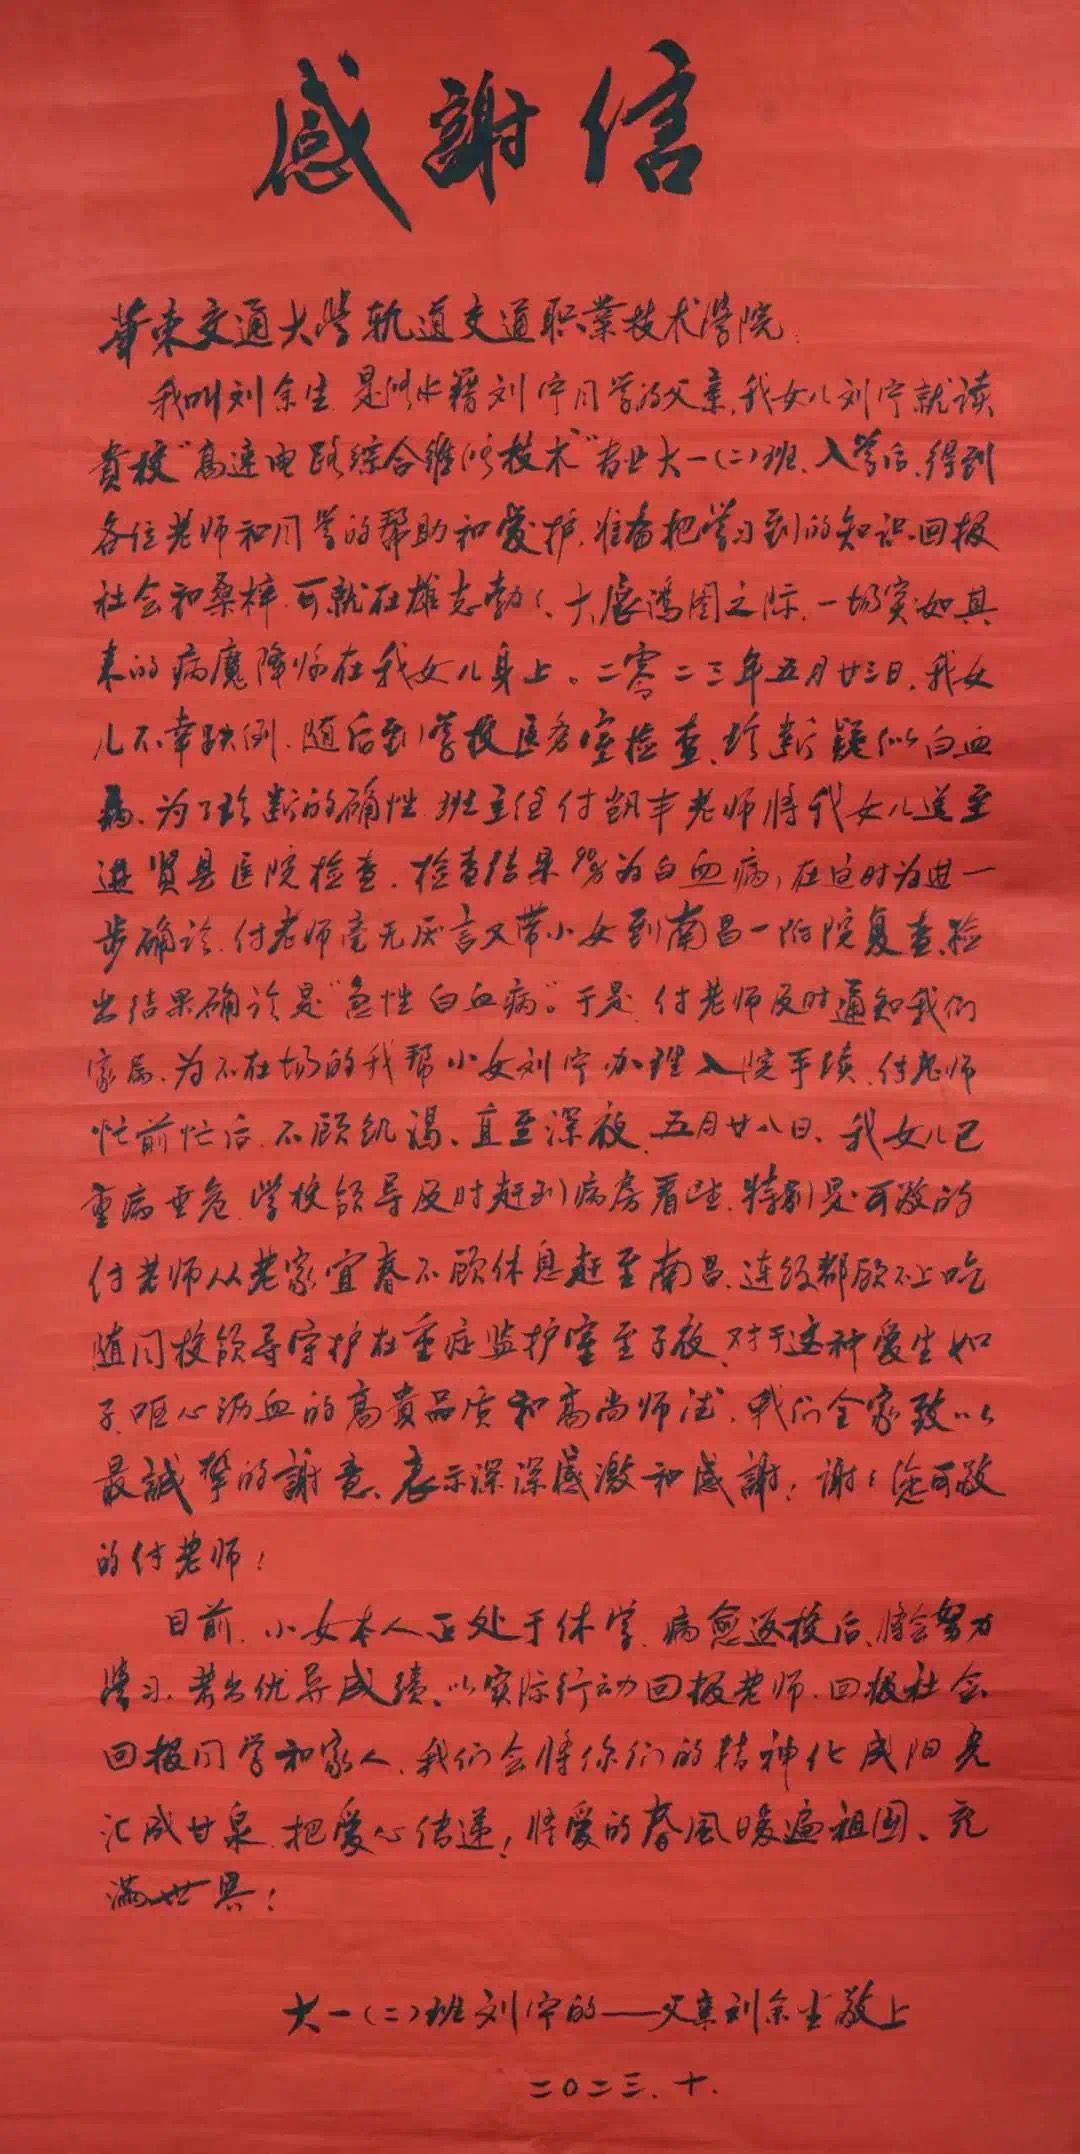 感謝信
華東交通大学轨道交通职業技术学院:
我叫刘余生,是修水籍刘宁同学的父亲,我女儿刘宁就读
貴校"高速电路综合维修技术"专业大一(二)班、入学后,得到
各位老师和同学的帮助和爱护,准备把学习到的知识回报
社会和桑梓,可就在雄志勃々、大展鸿图之际,一场突如其
来的病魔降临在我女儿身上。二零二三年五月廿三日,我女
儿不幸跌倒,随后到学校医务室检查、珍断疑似白血
病、为了珍断的确性,班主任付凯丰老师将我女儿送至
进贤县医院检查,检查结果90%为白血病,在这时为进一
步确诊,付老师毫无厌言又带小女到南昌一附院复查,检
出结果确诊是"急性白血病"。于是,付老师及时通知我们
家属,为不在场的我帮小女刘宁办理入院手续,付老师
忙前忙后,不顾饥渴、直至深夜,五月廿八日、我女儿已
重病垂危,学校领导及时赶到病房看望,特别是可敬的
付老师从老家宜春不顾休息赶至南昌,连饭都顾不上吃
随同校领导守护在重症监护室至子夜,对于这种爱生如
子,呕心沥血的高貴品质和高尚师德,我们全家致以
最誠挚的謝意、表示深深感激和感謝!谢々您可敬
的付老师!
目前,小女本人正处于休学,病愈返校后,将会努力
学习,考出优异成绩、以实际行动回报老师,回报社会
回报同学和家人,我们会将你们的精神化成阳光
汇成甘泉,把爱心传递!将爱的春风暖遍祖国、充
满世界!
大一(二)班刘宁的——父亲刘余生敬上
二〇二三.十.